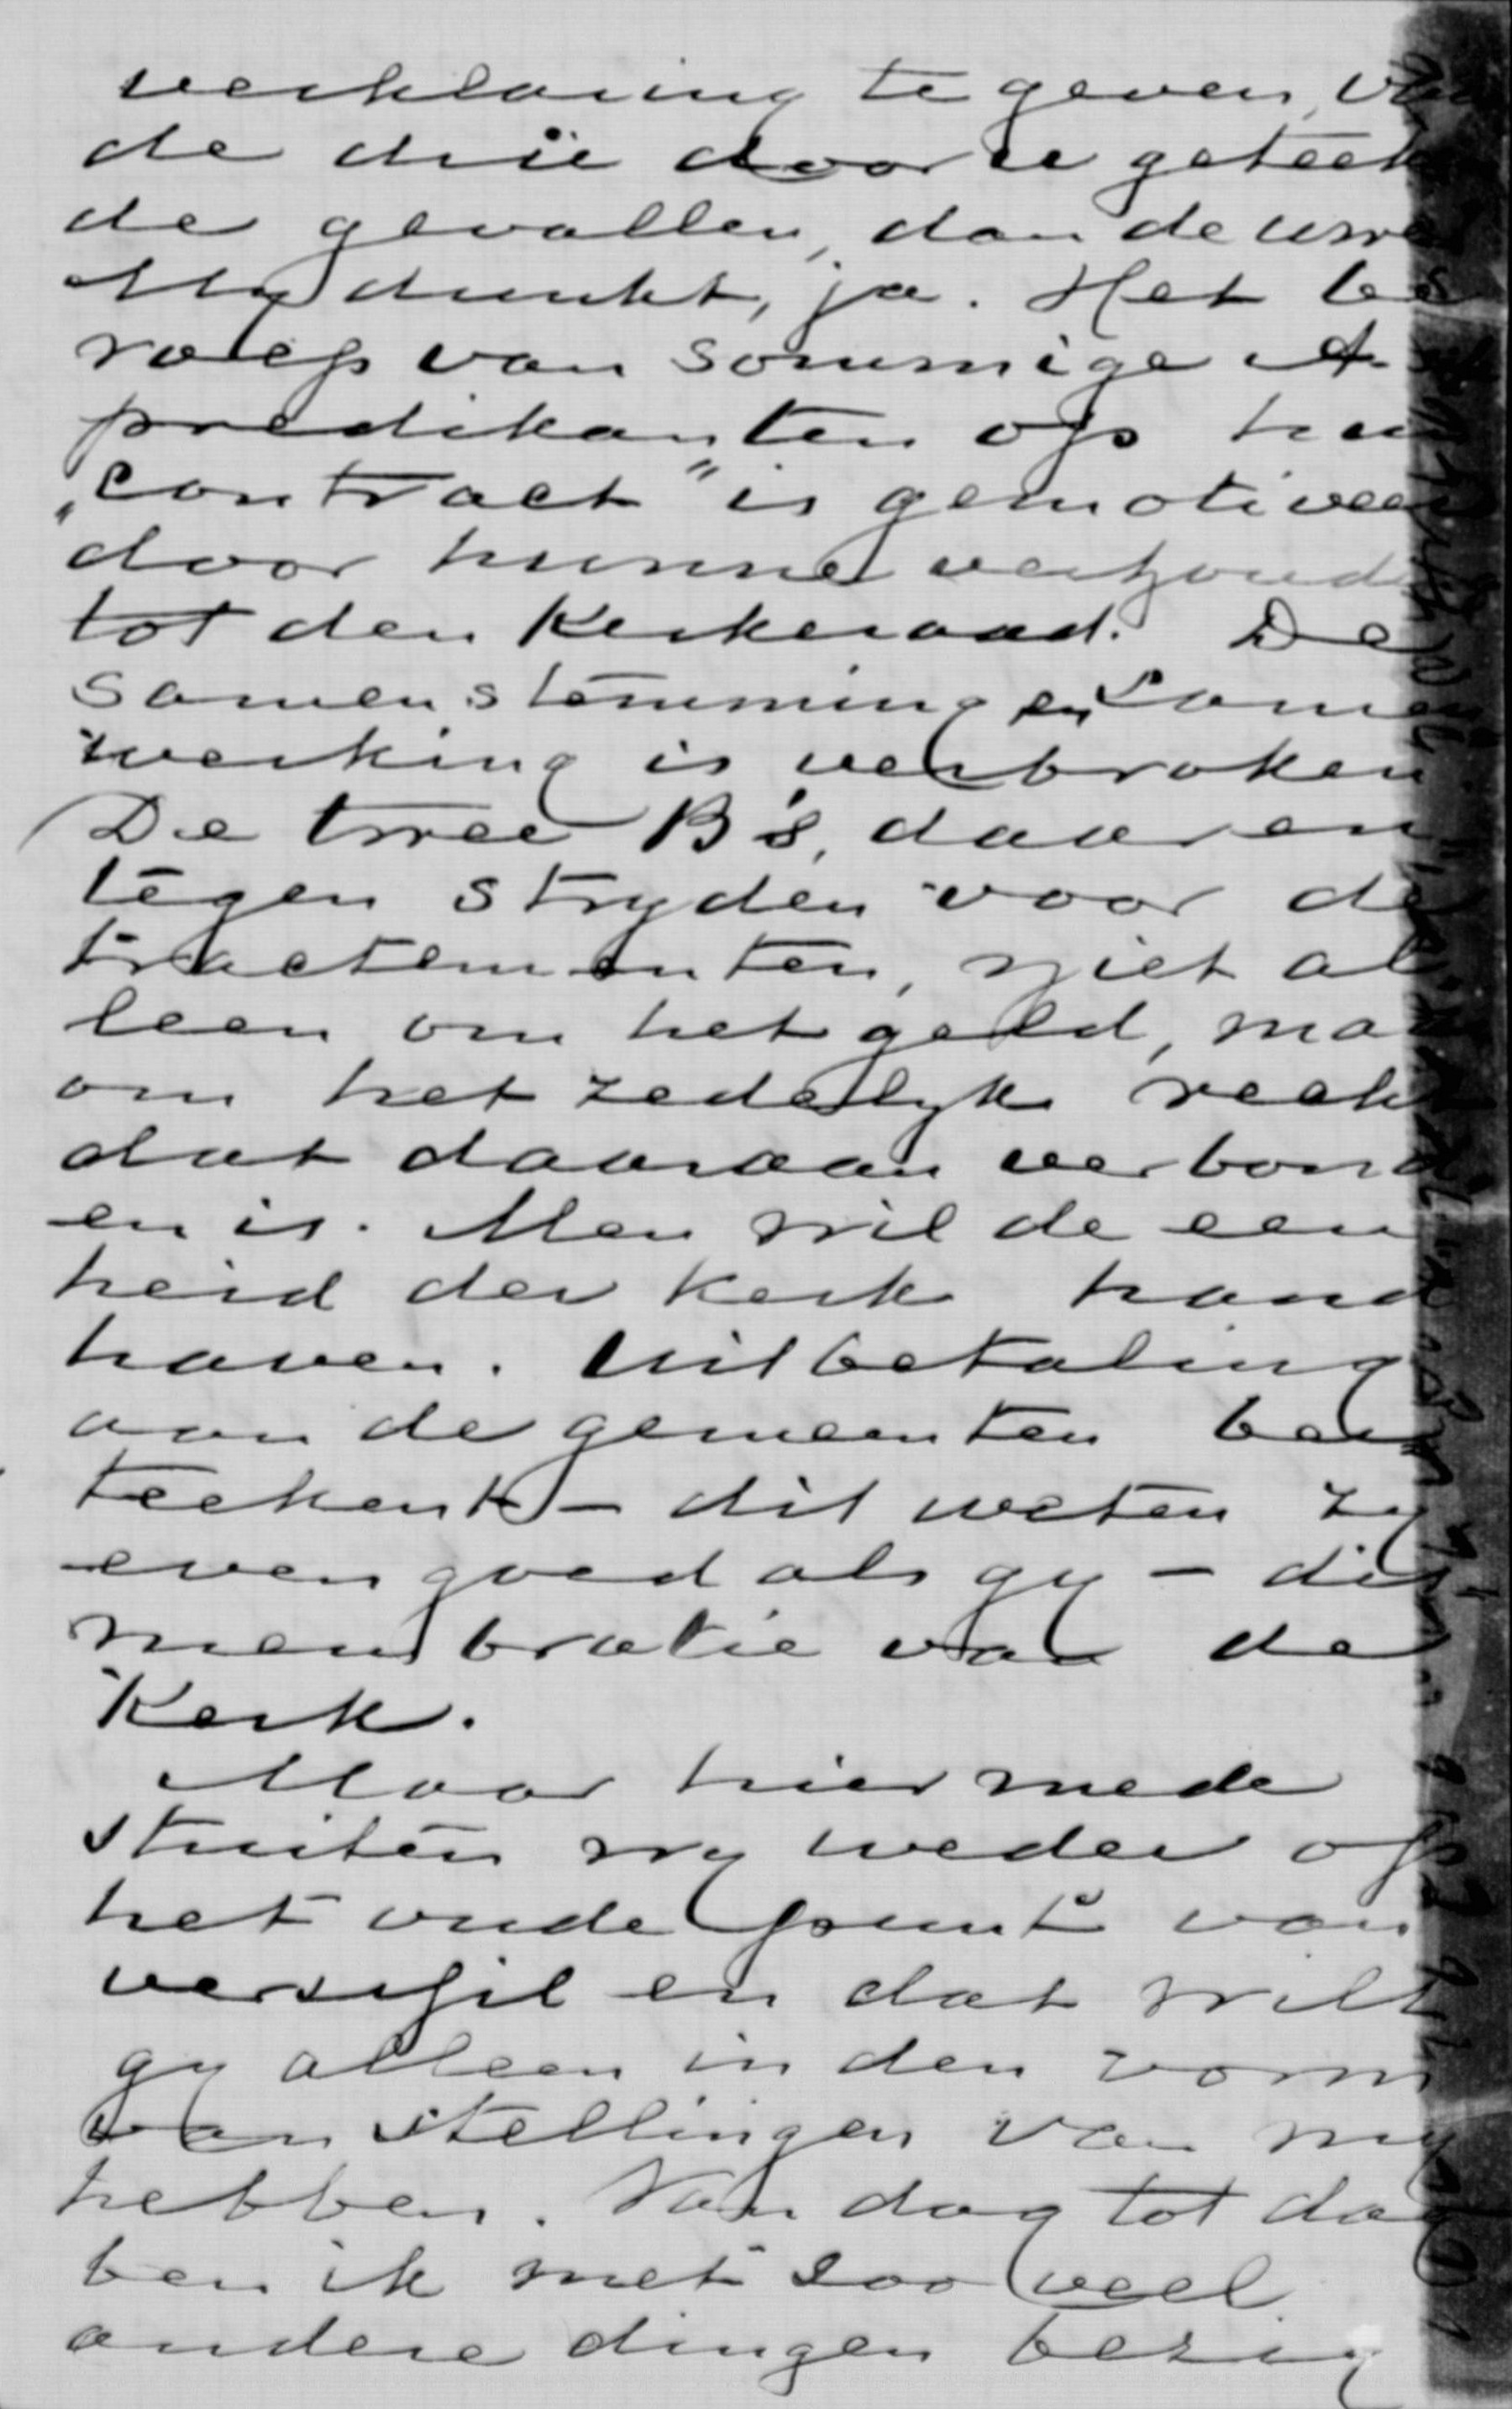 verklaring te geven van
de drie door u geteek
de gevallen, dan de uwe
My dunkt, ja. Het be
roep van sommige A.
predikanten op hun
„contract" is gemotiveer
door hunne verhoud
tot den Kerkeraad. De
samenstemming en samen
werking is verbroken
De twee B's, daaren
tegen stryden voor de
tractementen, niet al
leen om het geld, maar
om het zedelyk recht
dat daaraan verbond
en is. Men wil de een
heid der Kerk hand
haven. Uitbetaling
aan de gemeenten be
teekent – dit weten zy
even goed als gy – dis
membratie van de
Kerk.
Maar hiermede
stuiten wy weder op
het oude punt van
verschil en dat wilt
gy alleen in den vorm
van stellingen van my
hebben. Van dag tot dag
ben ik met soo veel
andere dingen bezig